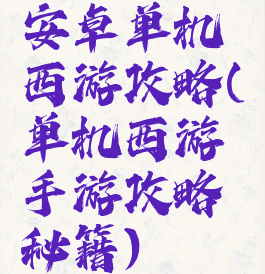 安卓单机
西游攻略(
单机西游
手游攻略
秘籍)